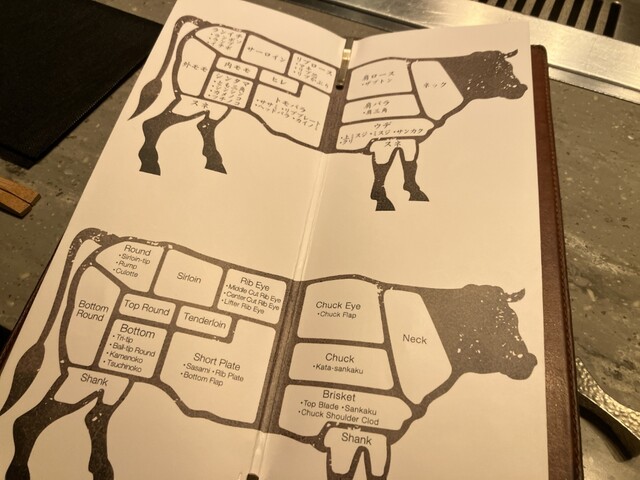 ランイチ
サーロイン
リブロース
外モモ
内モモ
ヒレ
シンタマ
スネ
トモバラ
肩ロース
・ザブトン
ネック
肩バラ
・肩三角
ウデ
スネ
Round
・Sirloin-tip
・Rump
・Culotte
Sirloin
Rib Eye
・Middle Cut Rib Eye
・Center Cut Rib Eye
・Lifter Rib Eye
Bottom
Round
Top Round
Tenderloin
Bottom
・Tri-tip
・Ball-tip Round
・Kamenoko
・Tsuchinoko
Short Plate
・Sasami ・Rib Plate
・Bottom Flap
Shank
Chuck Eye
・Chuck Flap
Neck
Chuck
・Kata-sankaku
Brisket
・Top Blade ・Sankaku
・Chuck Shoulder Clod
Shank